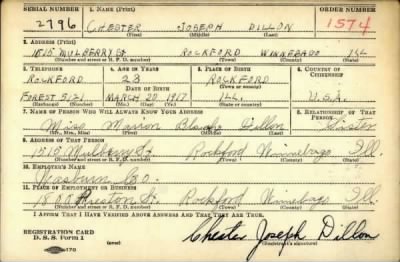 SERIAL NUMBER 1. NAME (Print) ORDER NUMBER
2796 CHESTER JOSEPH DILLON 1574
(First) (Middle) (Last)
2. ADDRESS (Print)
1515 MULBERRY St ROCKFORD WINNEBAGO ILL
(Number and street or R. F. D. number) (Town) (County) (State)
3. TELEPHONE 4. AGE IN YEARS 5. PLACE OF BIRTH 6. COUNTRY OF CITIZENSHIP
ROCKFORD 23 ROCKFORD
DATE OF BIRTH (Town or county)
FOREST 5121 MARCH 20 1917 ILL. U.S.A.
(Exchange) (Number) (Mo.) (Day) (Yr.) (State or country)
7. NAME OF PERSON WHO WILL ALWAYS KNOW YOUR ADDRESS 8. RELATIONSHIP OF THAT PERSON
Miss Marion Blanche Dillon Sister
(Mr., Mrs., Miss) (First) (Middle) (Last)
9. ADDRESS OF THAT PERSON
1515 Mulberry St Rockford Winnebago Ill.
(Number and street or R. F. D. number) (Town) (County) (State)
10. EMPLOYER'S NAME
Washburn Co.
11. PLACE OF EMPLOYMENT OR BUSINESS
1800 Preston St. Rockford Winnebago Ill.
(Number and street or R. F. D. number) (Town) (County) (State)
I AFFIRM THAT I HAVE VERIFIED ABOVE ANSWERS AND THAT THEY ARE TRUE.
REGISTRATION CARD
D. S. S. Form 1 Chester Joseph Dillon
(Registrant's signature)